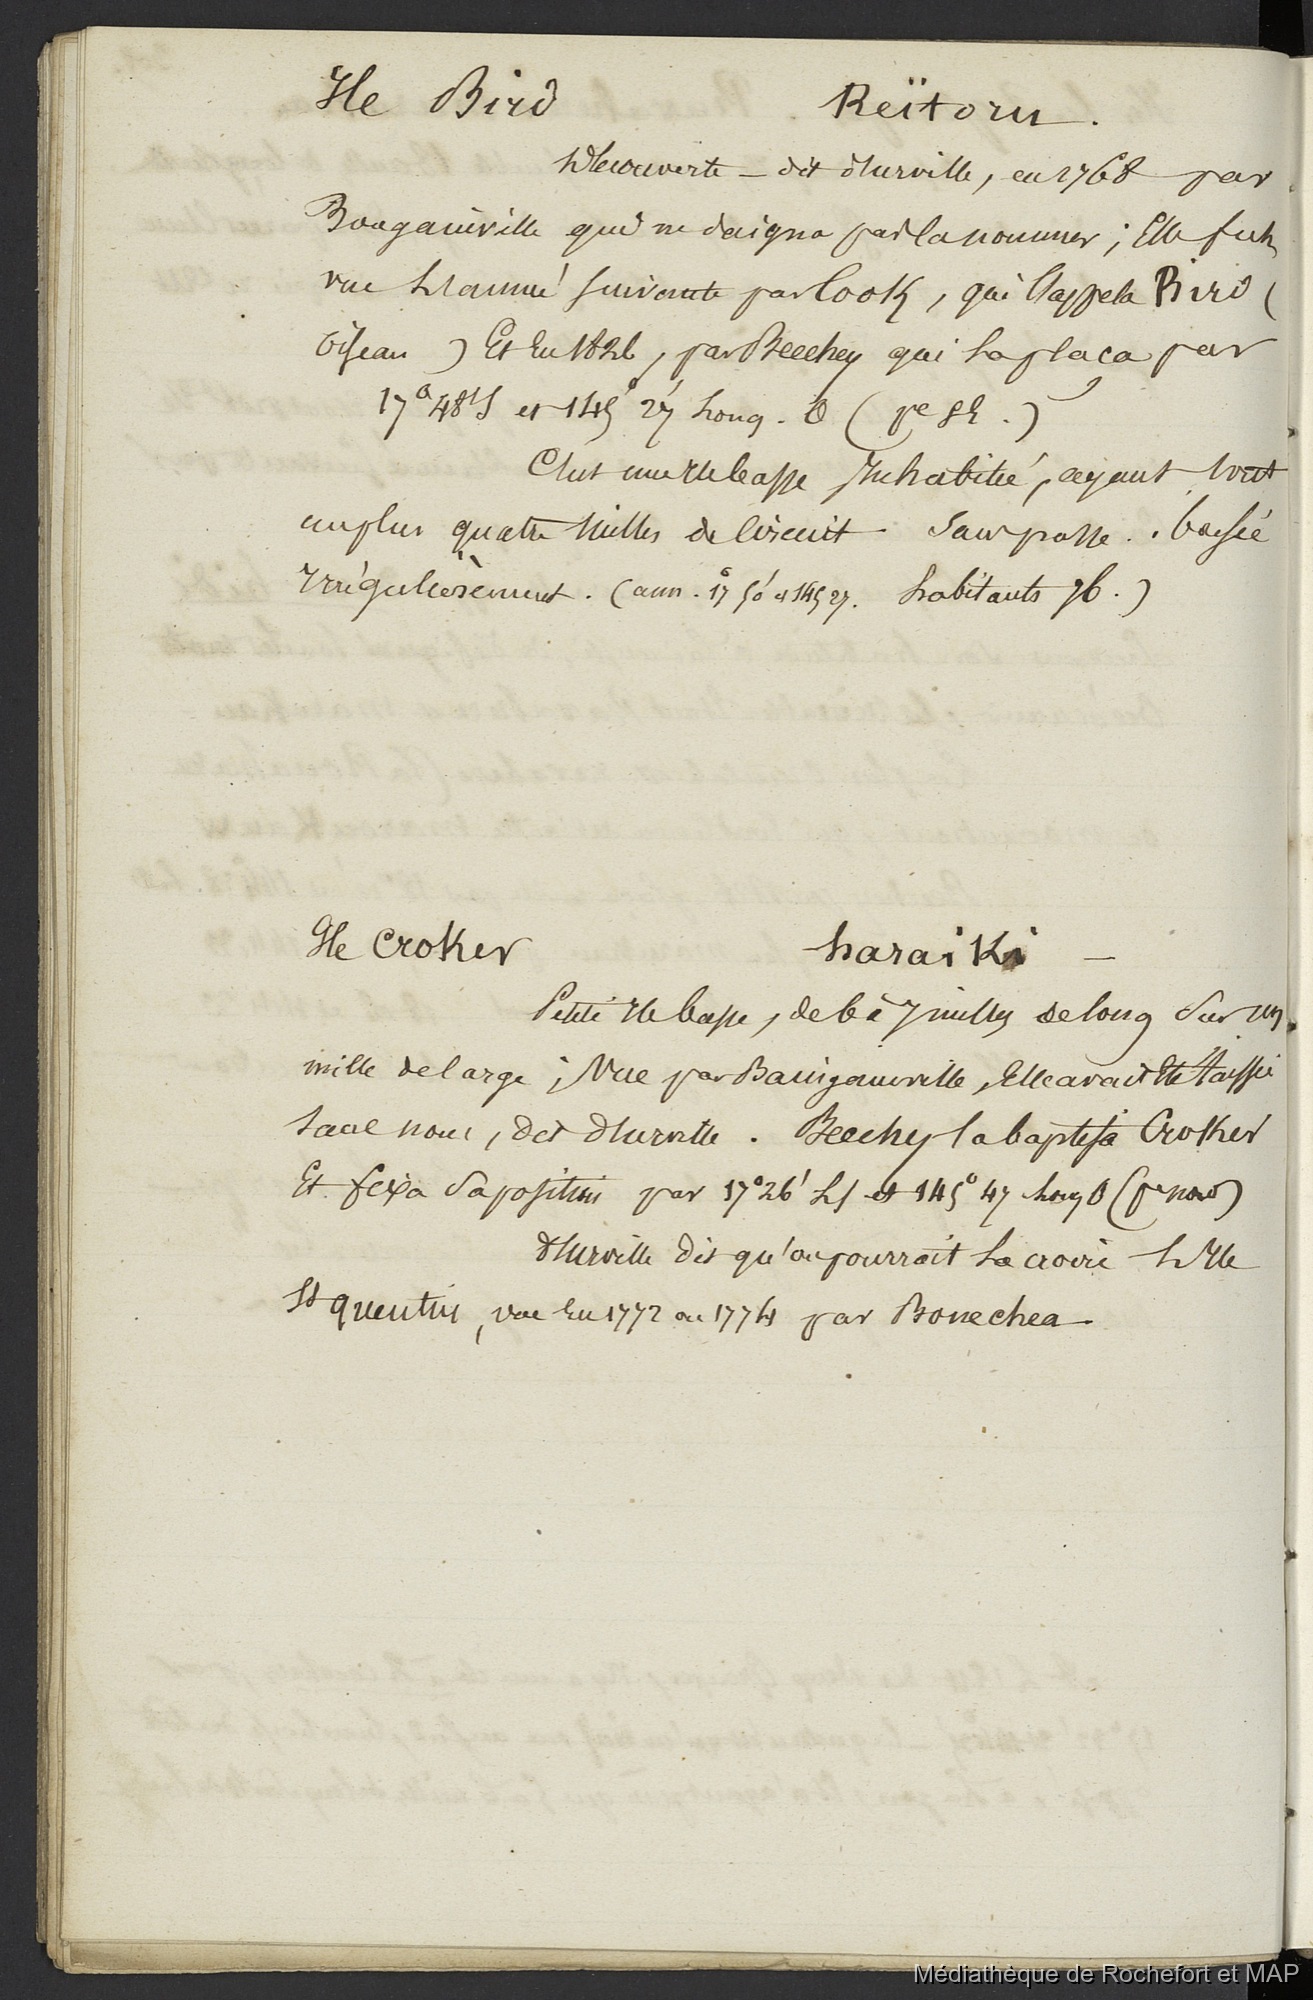 Ile Bird Reïtoru.
Découverte - dit d'Urville, en 1768 par
Bougainville qui ne daigna pas la nommer ; Elle fut
vue L'année suivante par Cook, qui l'appela Bird (
oiseau ) Et En 1826, par Beechey qui la plaça par
17° 48' S et 145° 27' Long. O (pe SE.)
C'est une Ile basse Inhabitée, ayant tout
au plus quatre Milles de Circuit sans passe. boisée
Irrégulièrement. (ann. 17° 50' et 145 27. habitants 76.)
Ile Croker haraiki -
Petite Ile basse, de 6 à 7 milles de long sur un
mille de large ; Vue par Bougainville, Elle avait Eté laissée
sans nom, dit d'Urville. Beechey la baptisa Croker
Et fixa sa position par 17° 26' LS et 145° 47 Long O (pe nord)
d'Urville dit qu'on pourrait la croire L'Ile
St quentin, vue En 1772 ou 1774 par Bonechea.
Médiathèque de Rochefort et MAP